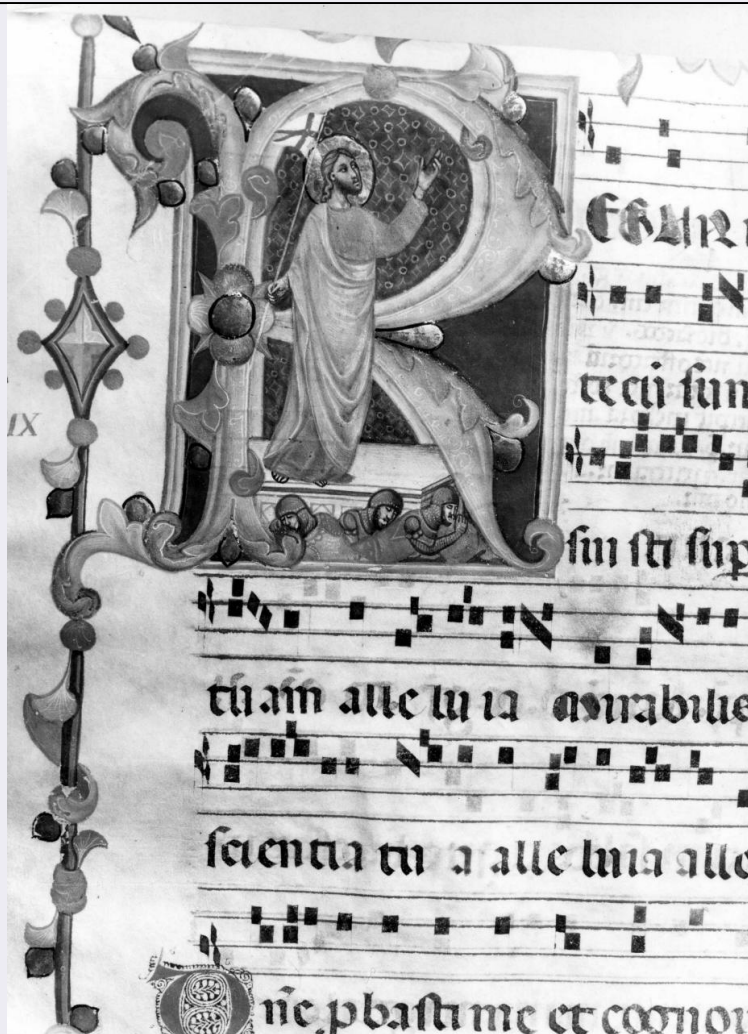 IX
R
ESURR
tecũ sum
sui sti sup
tu am alle lu ia mirabilis
scientia tu a alle luia alle
D ñe pbasti me et cognou